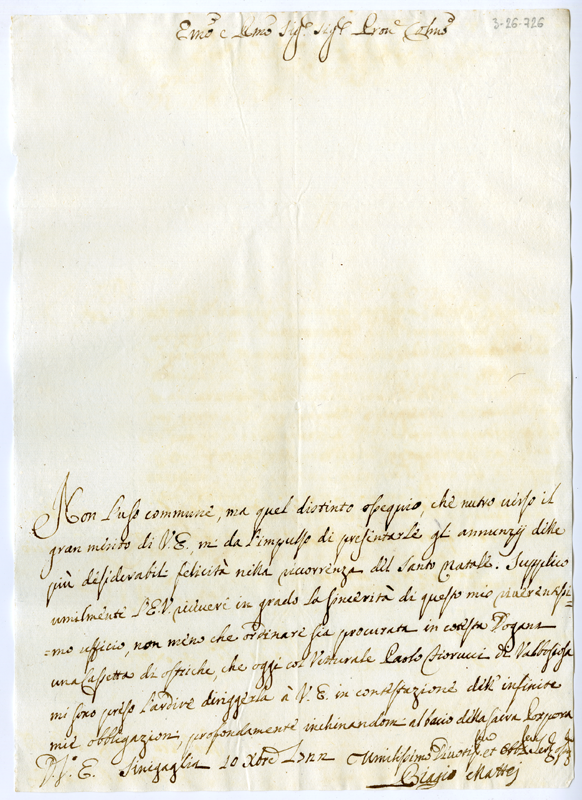 3-26-726
Emo e Rmo Sigr Sigr Pron Colmo
Non l'uso commune, ma quel distinto ossequio, che nutro verso il
gran merito di V. E. mi da l'impulso di presentarle gl'annunzij delle
più desiderabil felicità nella ricorrenza del Santo Natale. Supplico
umilmente l'E.V. ricevere in grado la sincerità di questo mio riverentissi=
=mo ufficio, non meno che ordinare sia procurata in cotesta Dogana
una Cassetta di ostriche, che oggi col Vetturale Paolo di Valbofusa
mi sono preso l'ardire diriggerla à V. E. in contestazione dell'infinite
mie obbligazion, profondamente inchinandom al bacio della Sacra Porpora
D. V. E. Sinigaglia 20 Xbre Umilissimo Divotissmo et
Biagio Mattej